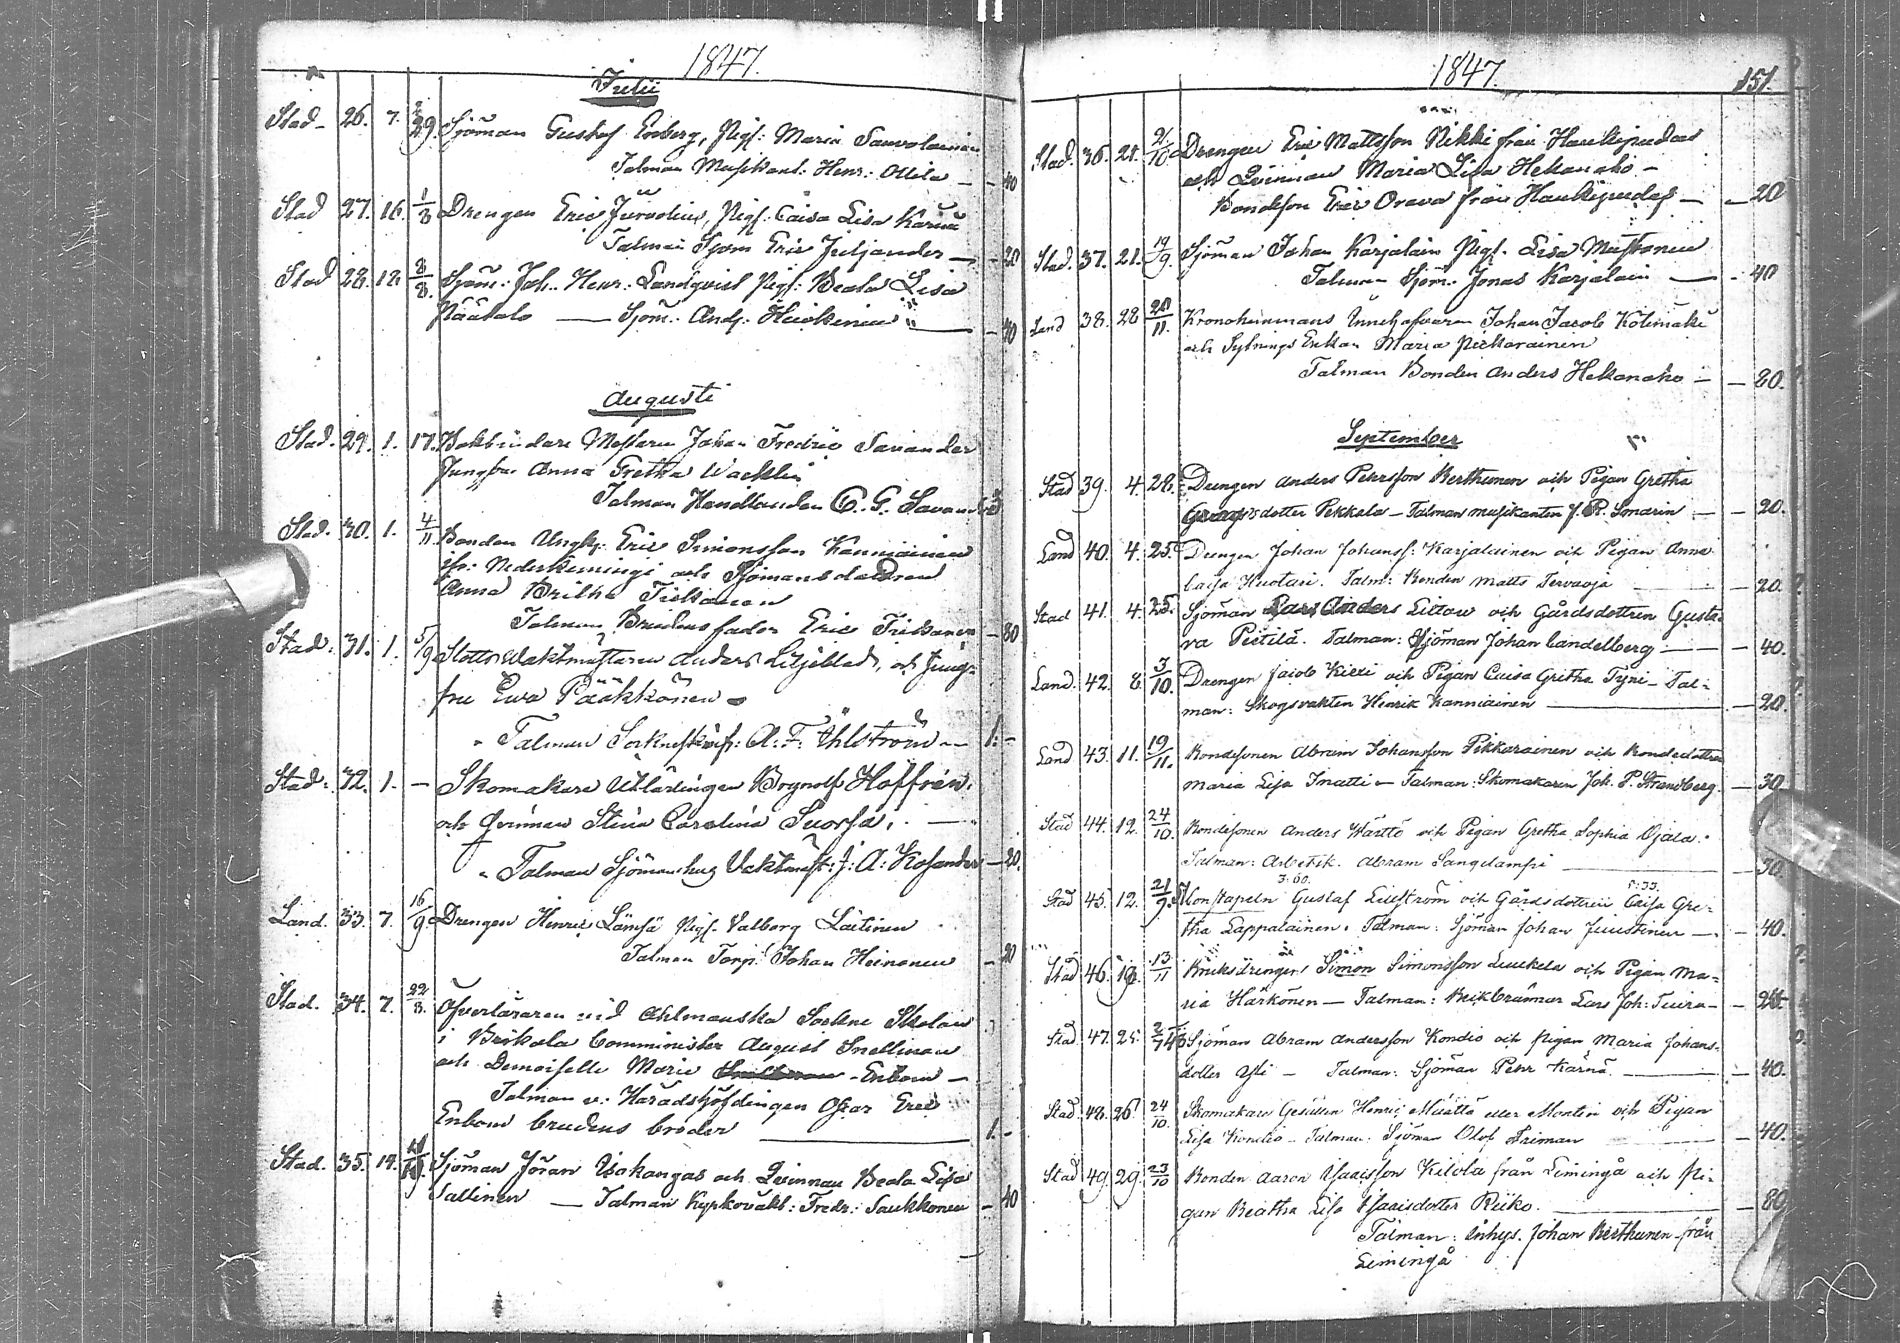 1847.
Julii
Stad- 26. 7. 2/29. Sjöman Gustaf Enberg, Pig: Maria Sauvolainen
Talman Musikant: Henr: Ollila - - 40
Stad 27. 16. 1/8 Drengen Eric Jurvelius, Pig: Caisa Lisa Karinen
Talman Sjöm Eric Juljander - - 20
Stad 28. 18. 8/8. Sjöm: Joh. Henr: Landqvist Pig: Beata Lisa
Räätalo — Sjöm: And: Heickinen — - 40
Augusti
Stad. 29. 1. 17. Bokbindare Mästaren Johan Fredric Savander
Jungfru Anna Gretha Wacklin
Talman Handlanden C. G. Savander
Stad. 30. 1. 4/11 Bonden Ungk: Eric Simonsson Kanniainen
ifr: Nederkiminge och Sjömansdottren
Anna Britha Tickanen
Talman Brudens fader Eric Tickanen - 80
Stad: 31. 1. 5/9 Slotts Waktmästaren Anders Liljeblad, och Jung-
fru Ewa Pääkkönen -
Talman Socknskräd: A: F: Ahlström - - 1: -
Stad: 32. 1. - Skomakare Utlärlingen Brynolf Hoffrén,
och Qvinnan Stina Carolina Suorsa,
Talman Sjömanshus Vaktmäst: J: A: Kosander - 20.
Land. 33. 7. 16/9 Drengen Henric Lämsä Pig. Valborg Laitinen
Talman Torp: Johan Heinonen - 20
Stad. 34. 7. 22/8. Öfverläraren vid Ahlmanska Sockne Skolan
i Brikala Comminister August Snellman
och Demoiselle Marie Enbom -
Talman v. Häradshöfdingen Oscar Eric
Enbom brudens broder — 1. -
Stad. 35. 14. Sjöman Jöran Isokangas och Qvinnan Beata Lisa
Sallinen — Talman Kyrkovakt: Fredr: Saukkonen - 40
1847. 151.
Stad. 36. 21. 21/10 Drengen Eric Mattsson Nikki från Haukipudas
och Qvinnan Maria Lisa Hekanaho -
Bondeson Eric Orava från Haukipudas - - 20
Stad. 37. 21. 19/9. Sjöman Johan Karjalain Pig. Lisa Mustonen
Talman Sjöm. Jonas Karjalain — - 40
Land 38. 28 20/11. Kronohemmans Innehafvaren Johan Jacob Kolimäki
och Sytnings Enkan Maria Pickarainen
Talman Bonden Anders Hekanaho - - 20.
September
Stad 39. 4. 28. Drengen Anders Pehrsson Kerthunen och Pigan Gretha
Georgsdotter Pekkala - Talman musikanten J. R. Smarin - - 20.
Land 40. 4. 25. Drengen Johan Johanss: Karjalainen och Pigan Anna
Caisa Huotari. Talm: Bonden Matts Tervaoja — 20.
Stad 41. 4. 25. Sjöman Lars Anders Littow och Gårdsdottren Gusta-
va Pietilä. Talman: Sjöman Johan Candelberg — - 40.
Land. 42. 8 3/10. Drengen Jacob Kicki och Pigan Caisa Gretha Tyni - Tal-
man: Skogsvakten Henrik Kanniainen — - 20.
Land 43. 11. 19/11. Bondesonen Abram Johansson Pikkarainen och Bondedottren
Maria Lisa Inatti - Talman: Skomakaren Joh. P. Strandberg. - 30.
Stad 44. 12. 24/10. Bondesonen Anders Kärttö och Pigan Gretha Sophia Ojala.
Talman: Arbetsk. Abram Sangelampi — 30.
Stad 45. 12. 21/9. Konstapeln Gustaf Lindström och Gårdsdottren Caisa Gre-
tha Lappalainen. Talman: Sjöman Johan Juustinen - - 40.
Stad 46. 13/11 Bruksdrengen Simon Simonsson Luukela och Pigan Ma-
ria Härkönen - Talman: Beckbrännar Lars Joh: Tuira - - 20.
Stad. 47. 25. Sjöman Abram Andersson Kondio och Pigan Maria Johans-
dotter Yli - Talman: Sjöman Pehr Kärnä. — - 40.
Stad. 48. 26 24/10. Skomakare Gesällen Henric Määttä eller Montin och Pigan
Lisa Kondio - Talman. Sjöman Olof Friman — 40.
Stad 49. 29. 23/10 Bonden Aaron Isaacsson Kilola från Limingå och Pi-
gan Beatha Lisa Isaacsdotter Riiko. — 80
Talman: Inhys. Johan Kerthunen från
Limingå